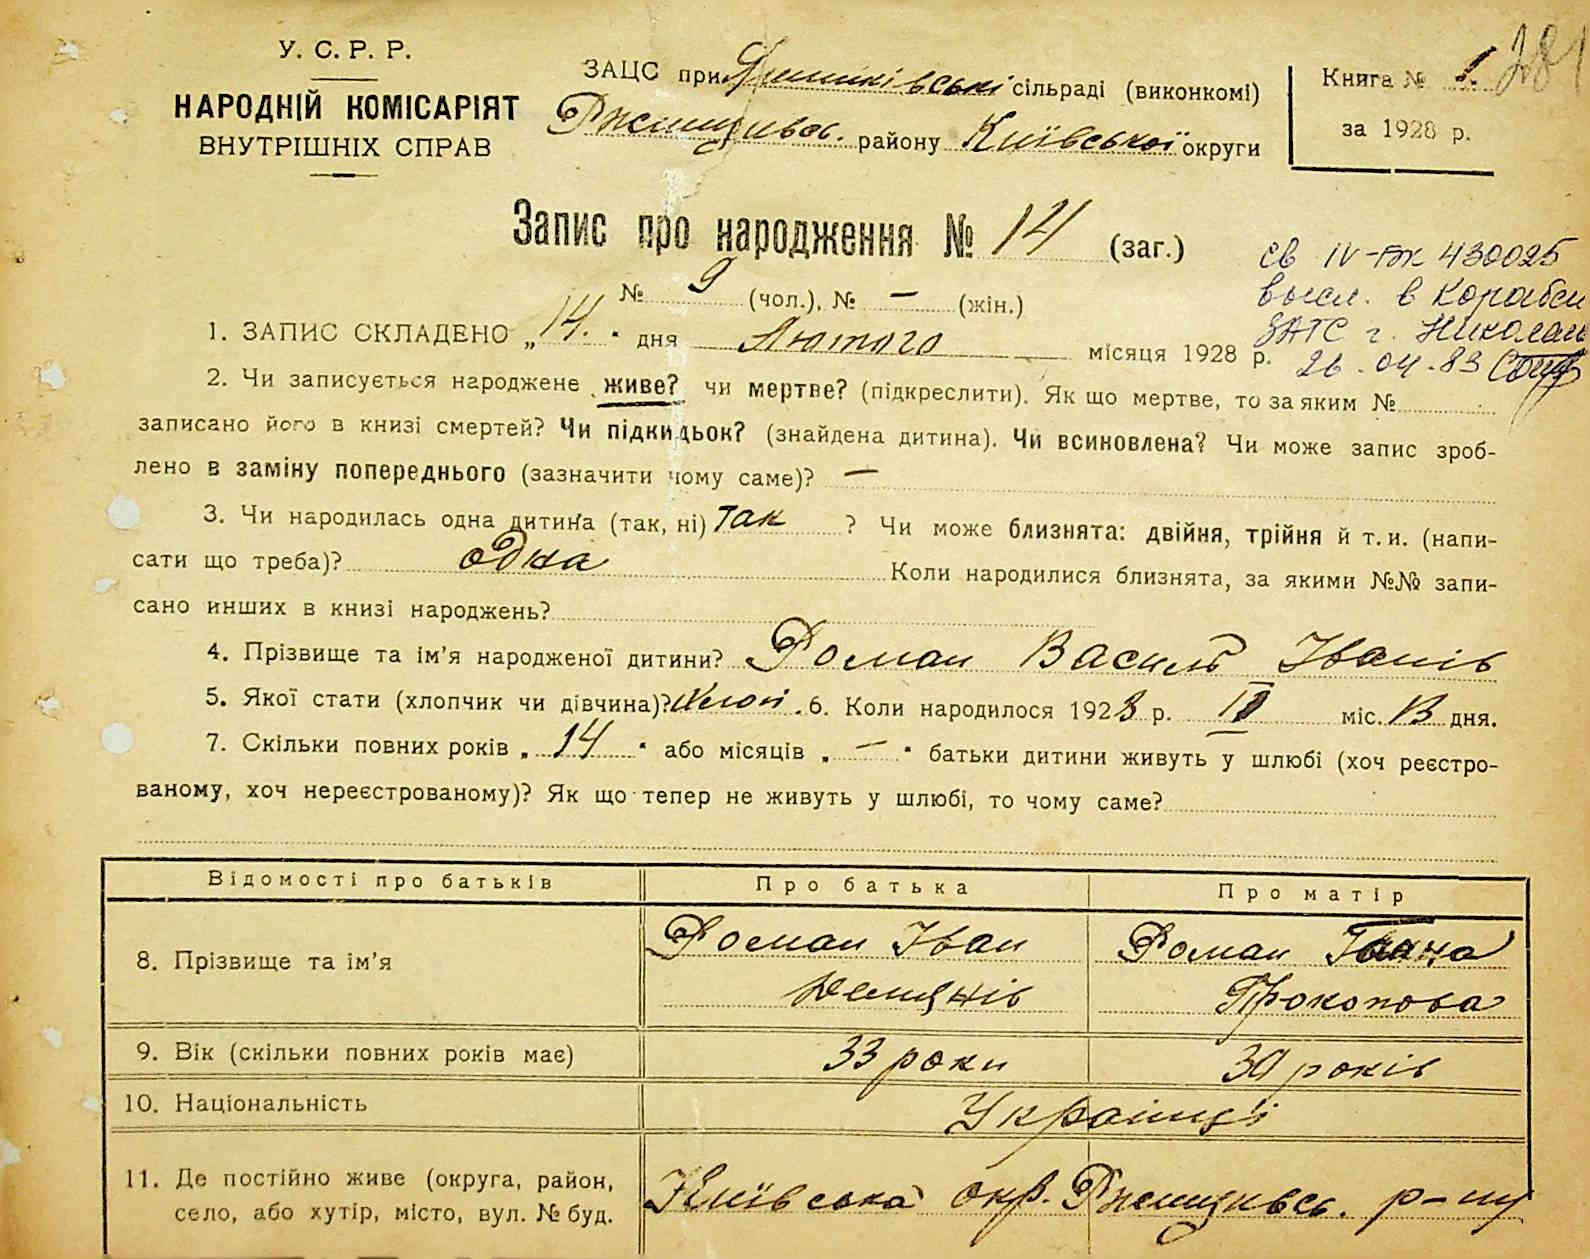 У. С. Р. Р.
НАРОДНІЙ КОМІСАРІЯТ
ВНУТРІШНІХ СПРАВ
ЗАЦС при сільраді (виконкомі)
Ржищивсь. району Київської округи
Книга № 1
за 1928 р.
Запис про народження № 14 (заг.)
№ 9 (чол.), № — (жін.)
св IV-БК 430025
высл. в Корабел
ЗАГС г. Николаев
26.04.83
1. ЗАПИС СКЛАДЕНО „14." дня Лютого місяця 1928 р.
2. Чи записується народжене живе? чи мертве? (підкреслити). Як що мертве, то за яким №
записано його в книзі смертей? Чи підкидьок? (знайдена дитина). Чи всиновлена? Чи може запис зроб-
лено в заміну попереднього (зазначити чому саме)? —
3. Чи народилась одна дитина (так, ні) так ? Чи може близнята: двійня, трійня й т. и. (напи-
сати що треба)? одна Коли народилися близнята, за якими №№ запи-
сано инших в книзі народжень?
4. Прізвище та ім'я народженої дитини? Роман Василь Іванів
5. Якої стати (хлопчик чи дівчина)? Хлоп. 6. Коли народилося 1928 р. II міс. 13 дня.
7. Скільки повних років „ 14 " або місяців „ — " батьки дитини живуть у шлюбі (хоч реєстро-
ваному, хоч нереєстрованому)? Як що тепер не живуть у шлюбі, то чому саме?
Відомості про батьків Про батька Про матір
8. Прізвище та ім'я Роман Іван Роман Ганна
Прокопова
9. Вік (скільки повних років має) 33 роки 30 років
10. Національність Українці
11. Де постійно живе (округа, район,
село, або хутір, місто, вул. № буд.
Київська окр. Ржищивсь. р-ну